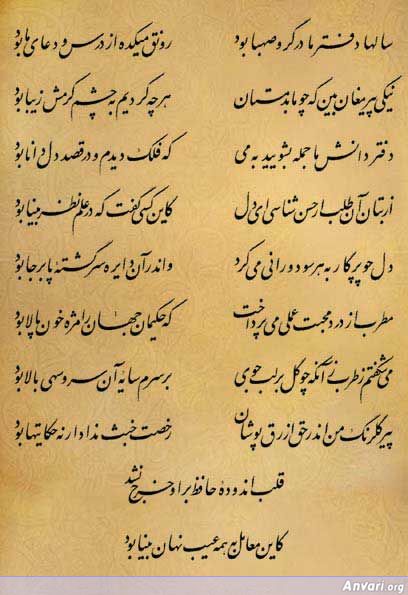 سالها دفتر ما در گرو صهبا بود رونق میکده از درس و دعای ما بود
نیکی پیر مغان بین که چو ما بدمستان هر چه کردیم به چشم کرمش زیبا بود
دفتر دانش ما جمله بشویید به می که فلک دیدم و در قصد دل دانا بود
از بتان آن طلب ار حسن شناسی ای دل کاین کسی گفت که در علم نظر بینا بود
دل چو پرگار به هر سو دورانی می کرد و اندر آن دایره سرگشته پابرجا بود
مطرب از درد محبت عملی می پرداخت که حکیمان جهان را مژه خون پالا بود
می شکفتم ز طرب زآنکه چو گل بر لب جوی بر سرم سایه آن سرو سهی بالا بود
پیر گلرنگ من اندر حق ازرق پوشان رخصت خبث نداد ار نه حکایتها بود
قلب اندوده حافظ بر او خرج نشد
کاین معامل به همه عیب نهان بینا بود
Anvari.org